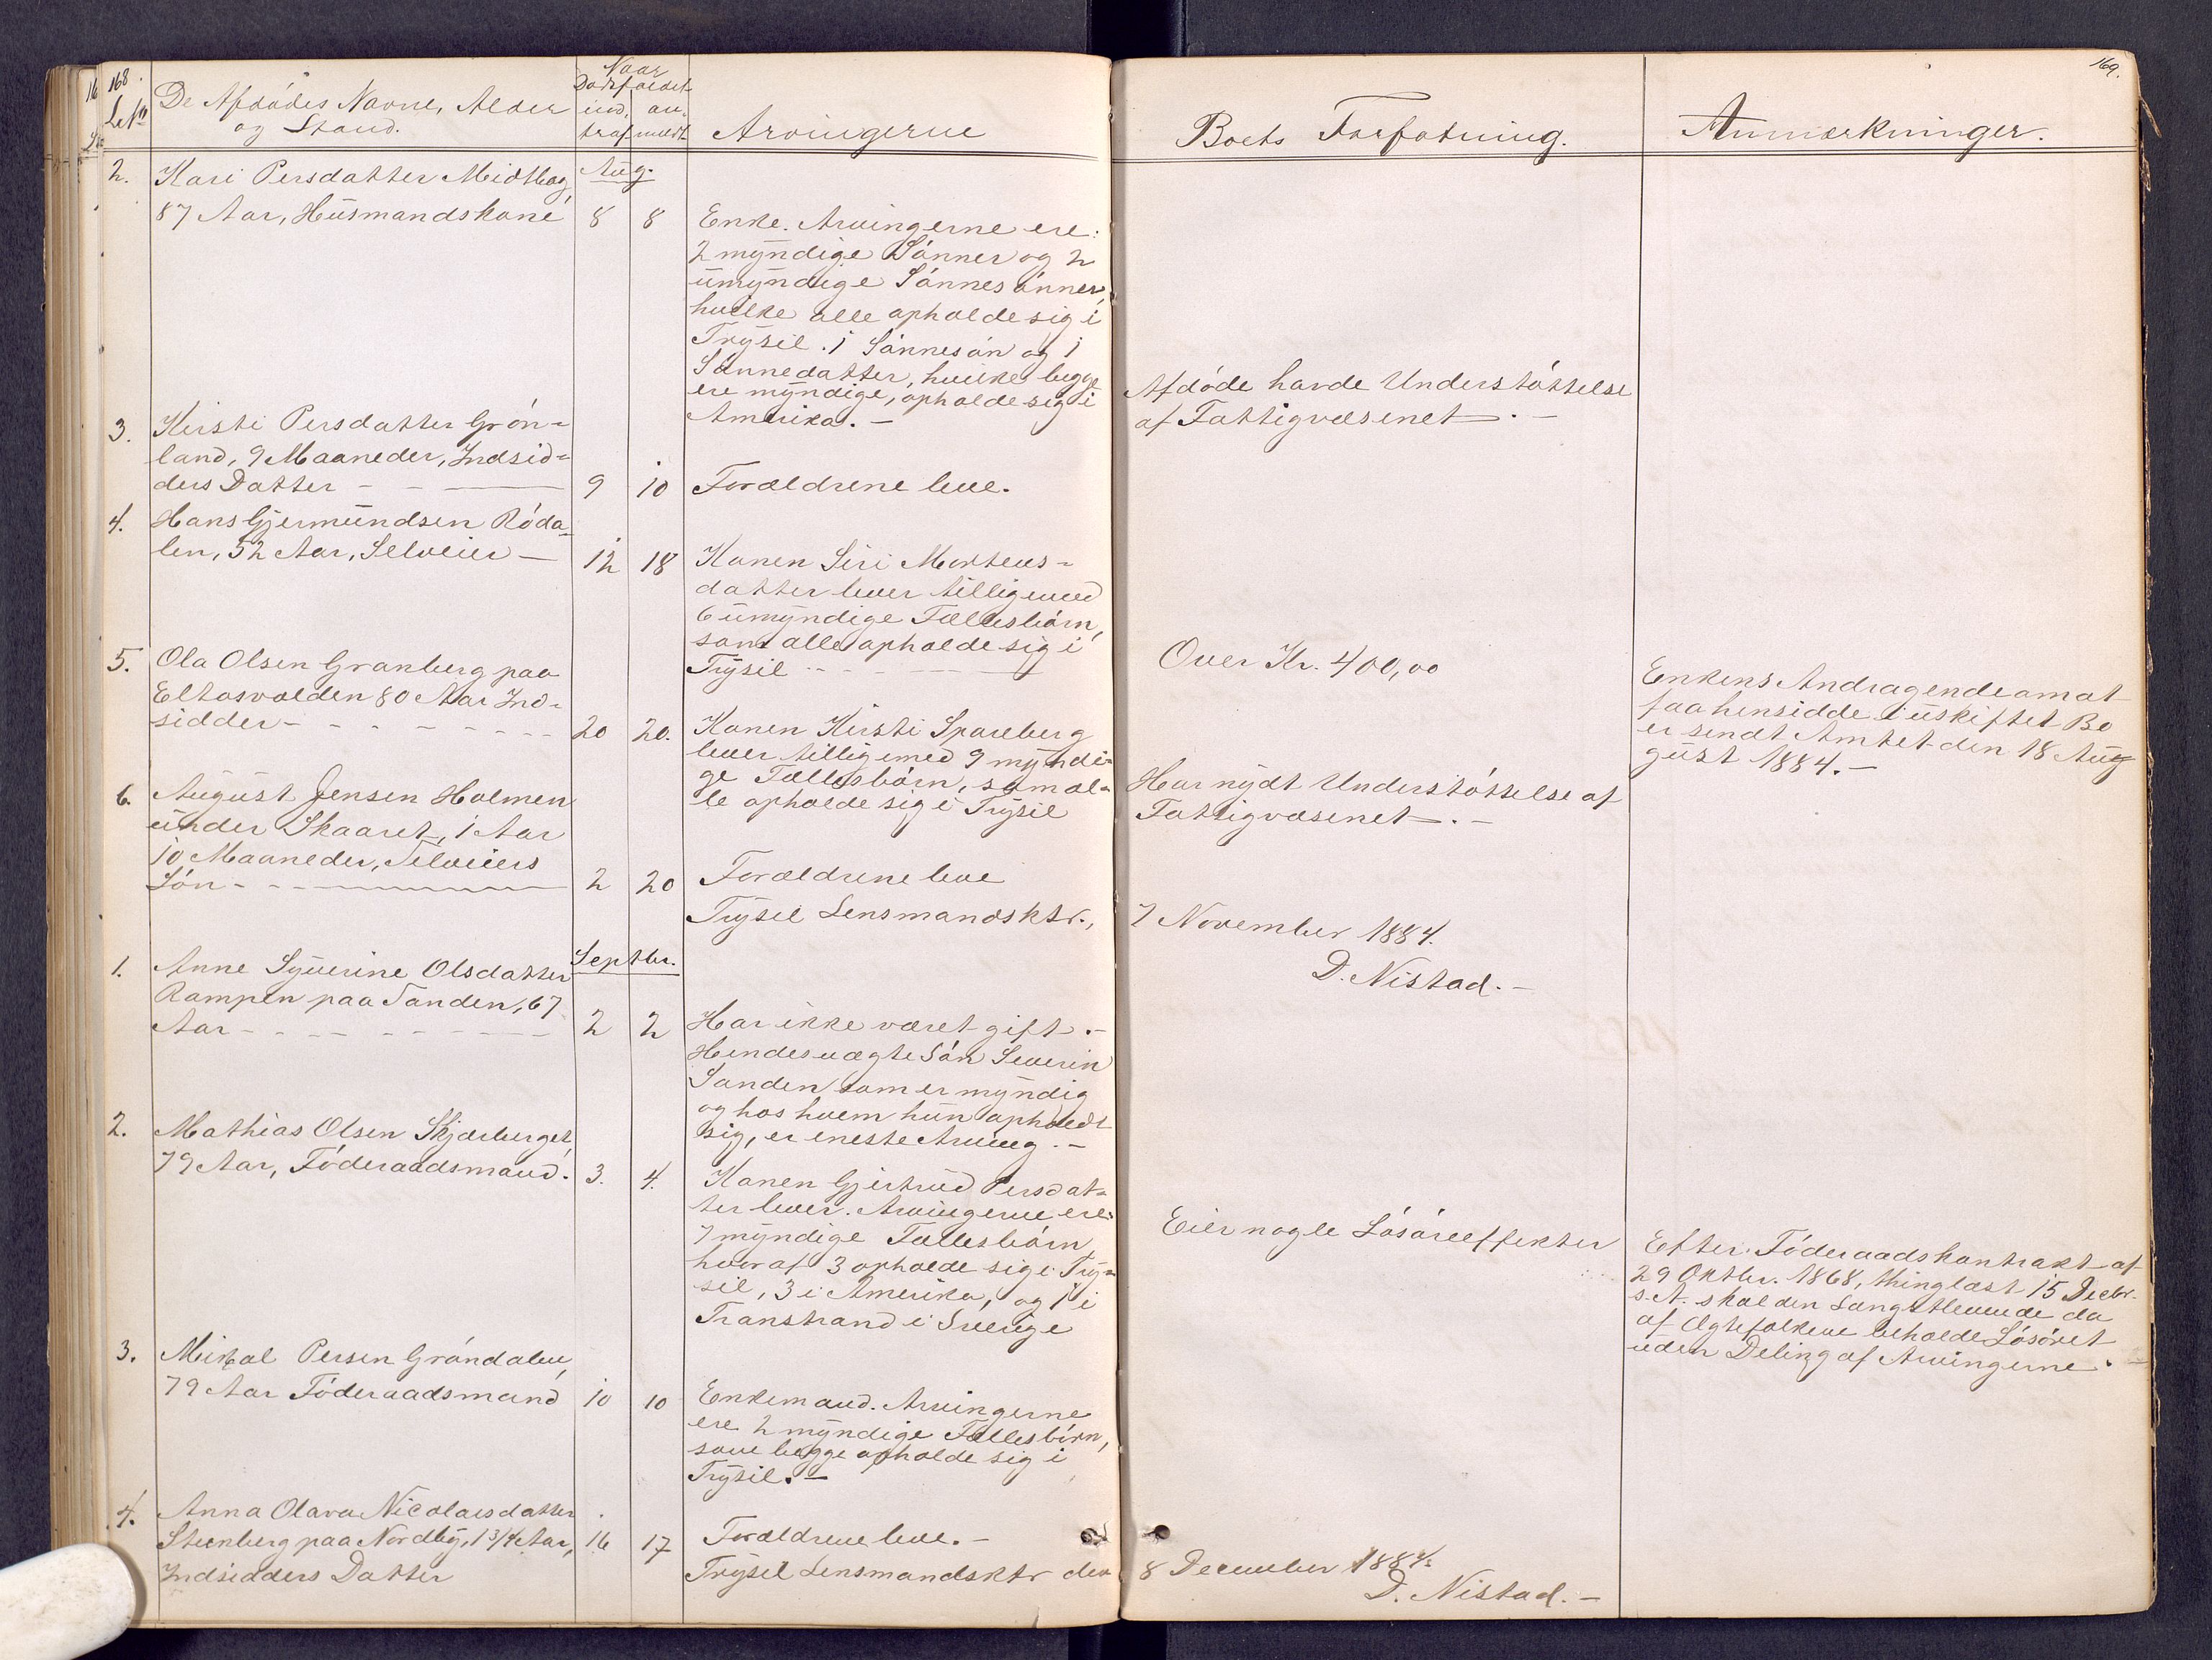 168.
169.
Naar
Dødsfaldet
De Afdødes Navne, Alder
og Stand.
ind-
traf
an-
meldt
Arvingerne
Boets Forfatning.
Anmærkninger.
Aug.
2. Kari Persdatter Midtbag,
87 Aar, Húsmandskone 8 8
Enke. Arvingerne ere:
2 mÿndige Sónner og 2
úmÿndige Sónnesónner,
hvilke alle opholde sig i
Trÿsil. 1 Sónnesón og 1
Sónnedatter, hvilke begge
ere mÿndige, opholde sig i
Amerika. –
Afdóde havde Understóttelse
af Fattigvæsenet. –
3. Kirsti Persdatter Grón-
land, 9 Maaneder, Indsid-
ders Datter 9 10 Forældrene leve.
4. Hans Gjermúndsen Róda-
len, 52 Aar, Selveier – 12 18
Konen Siri Mortens-
datter lever tilligemed
6 úmÿndige Fællesbórn,
som alle opholde sig i
Trÿsil
Over Kr. 400,00
Enkens Andragende om at
faa hensidde i úskiftet Bo
er sendt Amtet den 18 Aúg
gúst 1884. –
5. Ola Olsen Granberg paa
Eltosvolden 80 Aar Ind-
sidder 20 20.
Konen Kirsti Spareberg
lever tilligemed 9 mÿndi-
ge Fællesbórn, som al-
le opholde sig i Trÿsil
Har nÿdt Understóttelse af
Fattigvæsenet. –
6. Aúgúst Jensen Holmen
únder Skaaret, 1 Aar
10 Maaneder, Selveiers
Són 2 20 Forældrene leve
Trÿsil Lensmandsktr., 7 November 1884.
D. Nistad. –
Septbr.
1. Anne Sÿverine Olsdatter
Rampen paa Sanden, 67
Aar 2 2
Har ikke været gift. –
Hendes uægte Són Severin
Sanden som er mÿndig
og hos hvem hún opholdt
sig, er eneste Arving. –
2. Mathias Olsen Skjærberget,
79 Aar, Fóderaadsmand. 3. 4.
Konen Gjertrúd Persdat-
ter lever. Arvingerne ere:
7 mÿndige Fællesbórn
hvoraf 3 opholde sig i Trÿ-
sil, 3 i Amerika, og 1 i
Transtrand i Sverige
Eier nogle Lósóreeffekter
Efter Fóderaadskontrakt af
29 Oktbr. 1868, thinglæst 15 Decbr.
s. A. skal den Længstlevende da
af Ægtefolkene beholde Lósóret
úden Deling af Arvingerne. –
3. Mikal Persen Gróndalen,
79 Aar Fóderaadsmand 10 10
Enkemand. Arvingerne
ere 2 mÿndige Fællesbórn,
som begge opholde sig i
Trÿsil. –
4. Anna Olava Nicolaisdatter
Steenberg paa Nordbÿ, 1 3/4 Aar, 16 17 Forældrene leve. –
Indsidders Datter
Trÿsil Lensmandsktr den 8 December 1884.
D. Nistad. –